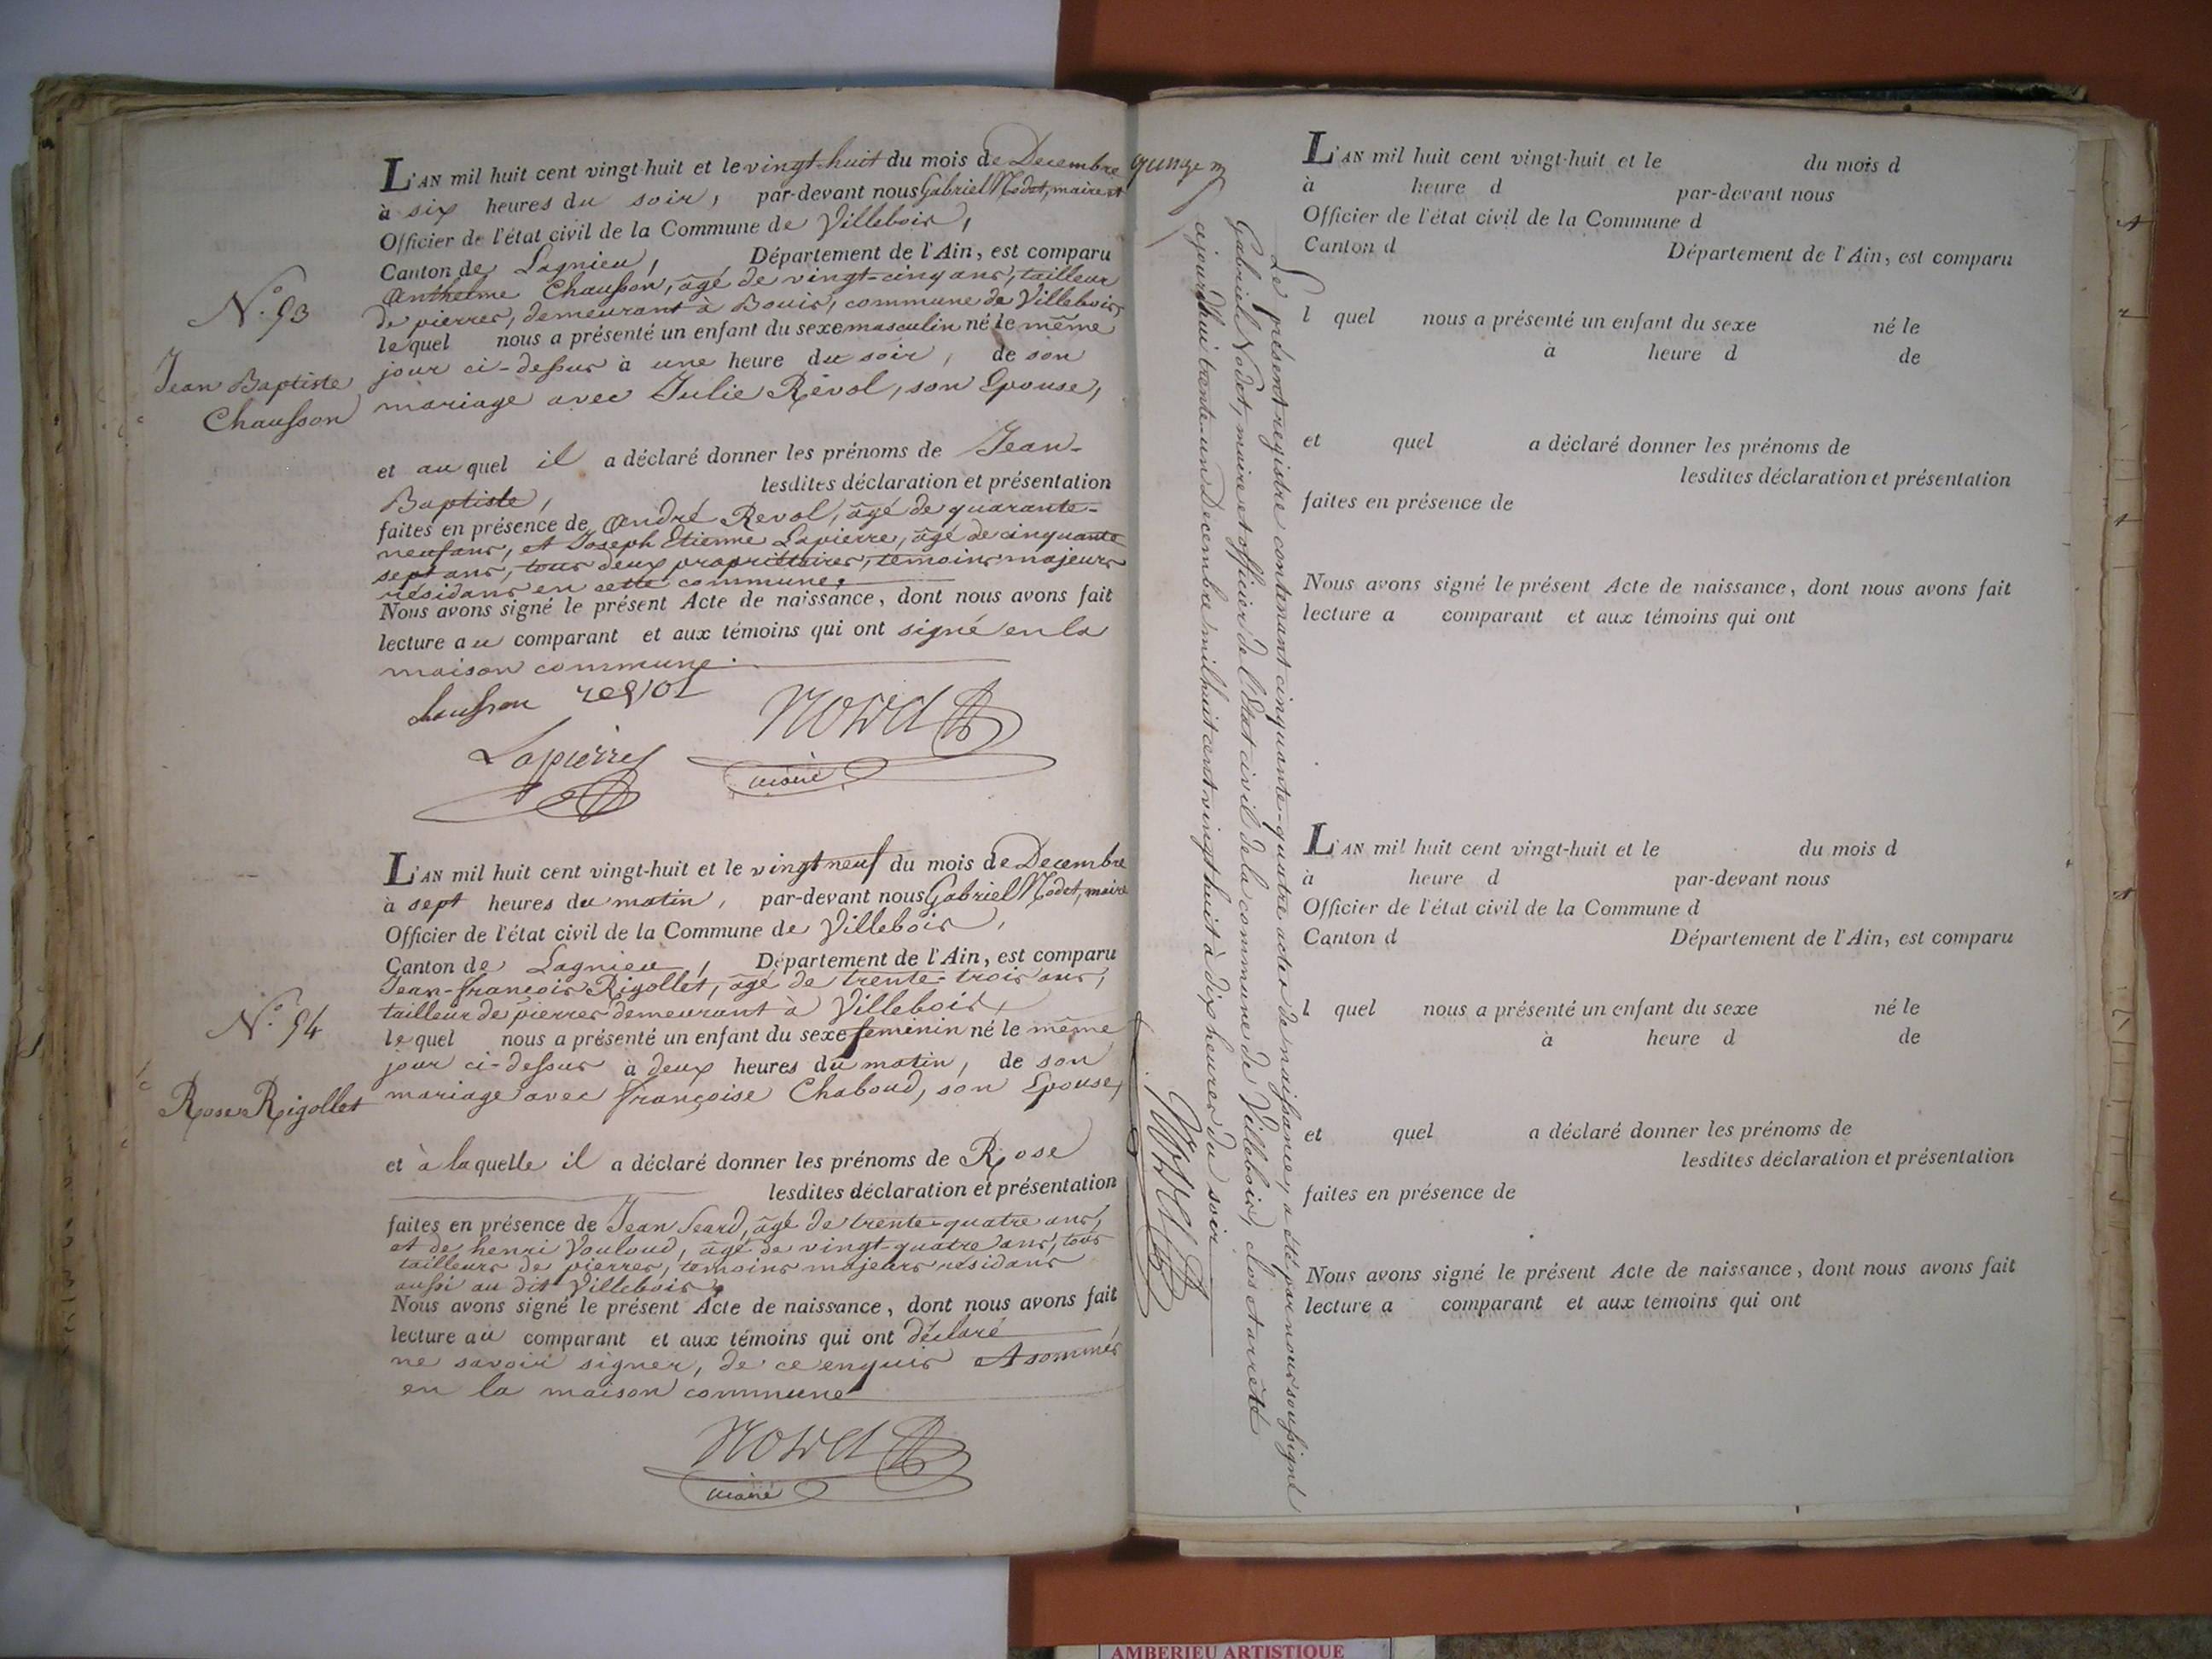 L'AN mil huit cent vingt-huit et le vingt-huit du mois de Decembre
à six heures du soir, par-devant nous Gabriel Nodet, maire et
Officier de l'état civil de la Commune de Villebois,
Canton de Lagnieu, Département de l'Ain, est comparu
Anthelme Chausson, âgé de vingt-cinq ans, tailleur
de pierres, demeurant à Bouis, commune de Villebois
lequel nous a présenté un enfant du sexe masculin né le même
jour ci-dessus à une heure du soir, de son
mariage avec Julie Revol, son Epouse,
et au quel il a déclaré donner les prénoms de Jean-
Baptiste, lesdites déclaration et présentation
faites en présence de André Revol, âgé de quarante-
neuf ans, et Joseph Etienne Lapierre, âgé de cinquante
sept ans, tous deux propriétaires, temoins majeurs
résidans en cette commune.
Nous avons signé le présent Acte de naissance, dont nous avons fait
lecture au comparant et aux témoins qui ont signé en la
maison commune.
chausson revol
Nodet
Lapierre
maire
N.° 93
Jean Baptiste
Chausson
L'AN mil huit cent vingt-huit et le vingt neuf du mois de Decembre
à sept heures du matin, par-devant nous Gabriel Nodet, maire
Officier de l'état civil de la Commune de Villebois,
Canton de Lagnieu, Département de l'Ain, est comparu
Jean-françois Rigollet, âgé de trente-trois ans,
tailleur de pierres demeurant à Villebois,
lequel nous a présenté un enfant du sexe femenin né le même
jour ci-dessus à deux heures du matin, de son
mariage avec françoise Chaboud, son Epouse,
et à laquelle il a déclaré donner les prénoms de Rose
lesdites déclaration et présentation
faites en présence de Jean Seard, âgé de trente-quatre ans,
et de henri Vouloud, âgé de vingt-quatre ans, tous
tailleurs de pierres, temoins majeurs résidans
aussi au dit Villebois.
Nous avons signé le présent Acte de naissance, dont nous avons fait
lecture au comparant et aux témoins qui ont déclaré
ne savoir signer, de ce enquis et sommés
en la maison commune
Nodet
maire
N.° 94
Rose Rigollet
Le présent registre contenant cinquante-quatre actes de naissance, a été par nous soussigné
Gabriel Nodet, maire et officier de l'Etat civil de la commune de Villebois, clos et arrêté
ajourdhui trente-un Decembre mil huit cent vingt huit à dix heures du soir
Nodet
L'AN mil huit cent vingt-huit et le du mois d
à heure d par-devant nous
Officier de l'état civil de la Commune d
Canton d Département de l'Ain, est comparu
l quel nous a présenté un enfant du sexe né le
à heure d de
et quel a déclaré donner les prénoms de
lesdites déclaration et présentation
faites en présence de
Nous avons signé le présent Acte de naissance, dont nous avons fait
lecture a comparant et aux témoins qui ont
L'AN mil huit cent vingt-huit et le du mois d
à heure d par-devant nous
Officier de l'état civil de la Commune d
Canton d Département de l'Ain, est comparu
l quel nous a présenté un enfant du sexe né le
à heure d de
et quel a déclaré donner les prénoms de
lesdites déclaration et présentation
faites en présence de
Nous avons signé le présent Acte de naissance, dont nous avons fait
lecture a comparant et aux témoins qui ont
AMBERIEU ARTISTIQUE